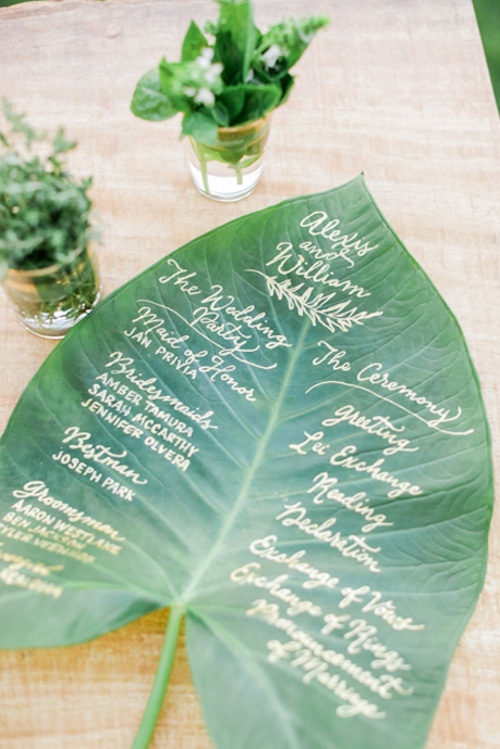 Alexis
and
William
The Wedding
Party
Maid of Honor
JAN PRIVIA
Bridesmaids
AMBER TAMURA
SARAH MCCARTHY
JENNIFER OLVERA
Bestman
JOSEPH PARK
Groomsman
AARON WESTLAKE
BEN JACKSON
The Ceremony
Greeting
Lei Exchange
Reading
Declaration
Exchange of Vows
Exchange of Rings
Pronouncement
of Marriage